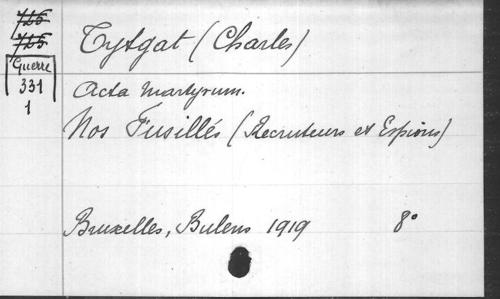 725
725
Guerre
331
1
Tytgat (Charles)
Acta Martyrum.
Nos Fusillés (Recruteurs et Espions)
Bruxelles, Bulens 1919 8°